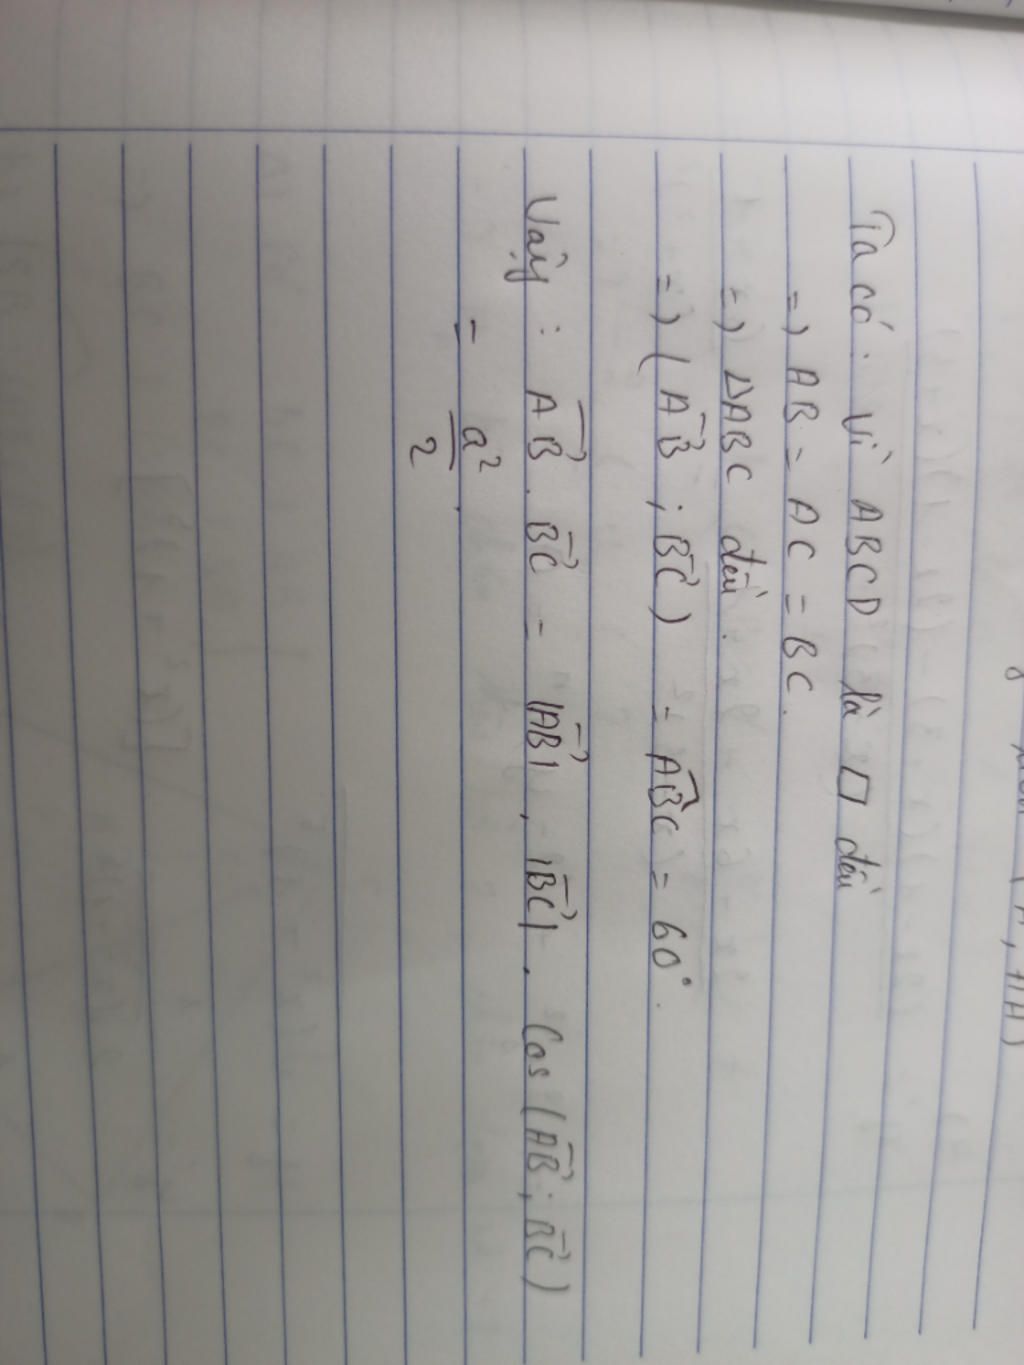 Ta có : Vì ABCD là □ đều
=) AB = AC = BC.
=) ΔABC đều.
=) (AB→ ; BC→) = ABC^ = 60°.
Vậy : AB→ . BC→ = |AB→| . |BC→| . Cos (AB→ ; BC→)
= a²/2 .